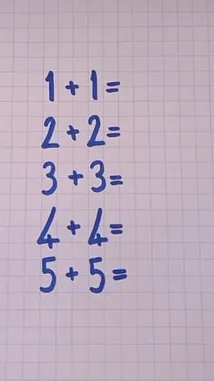 1 + 1 =
2 + 2 =
3 + 3 =
4 + 4 =
5 + 5 =